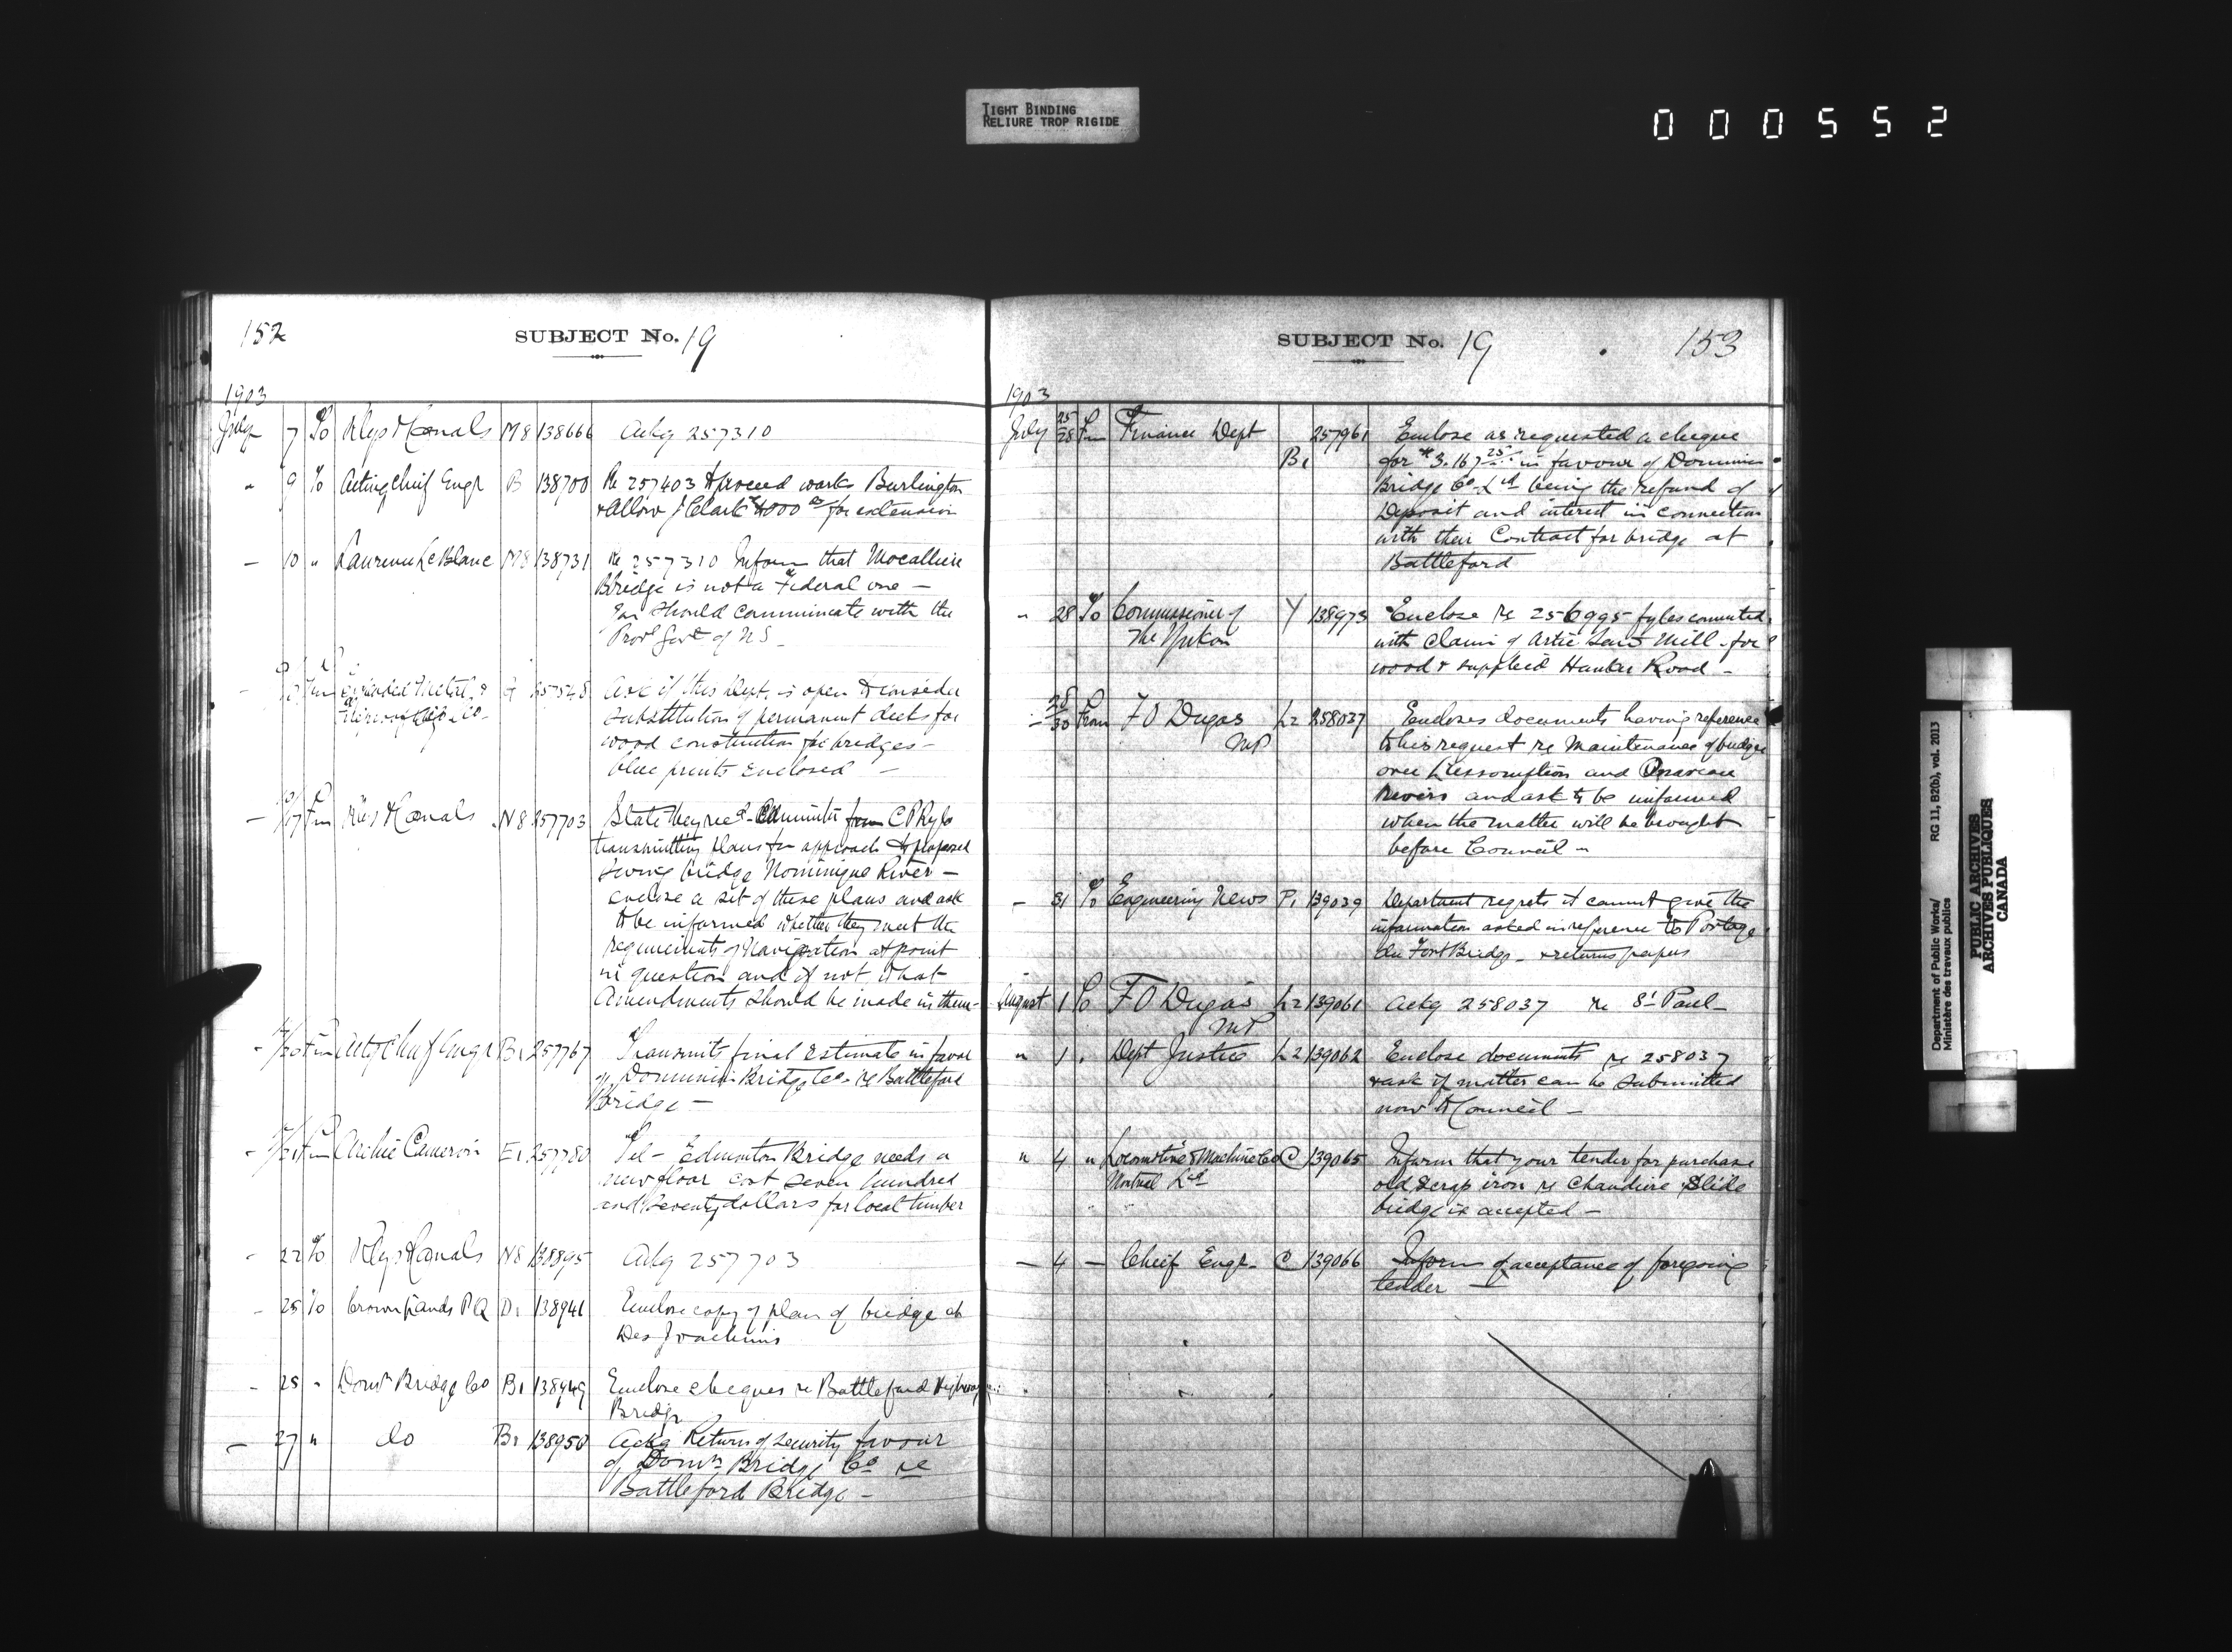 TIGHT BINDING
RELIURE TROP RIGIDE
000552
152
SUBJECT No. 19
1903
July 7 To Rlys & Canals M8 138666 Ackg 257310
" 9 To Acting Chief Engr B 138700 Re 257403 to proceed works Burlington
& allow J Clark $4000 00 for extension
- 10 " Laurence LeBlanc M8 138731 Re 257310 Inform that Mocallien
Bridge is not a Federal one -
You should communicate with the
Provl Govt of NS -
Fm Expanded Metal &
Fireproofing Co - Ask if this Dept. is open to consider
substitution of permanent decks for
wood construction for bridges -
blue prints enclosed -
- 10/17 Fm Rlys & Canals N8 257703 State they recd - Communctn from C P Ry Co
transmitting plans for approach to proposed
swing bridge Nominigue River -
enclose a set of these plans and ask
to be informed whether they meet the
requirements of Navigation at point
in question and if not what
Amendments should be made in them -
- /20 Fm Actg Chief Engr B1 257767 Transmits final estimate in favor
of Dominion Bridge Co - re Battleford
Bridge -
- /21 Fm Archie Cameron E1 257780 Tel - Edmonton Bridge needs a
new floor cost seven hundred
and seventy dollars for local timber
- 22 To Rlys & Canals N8 138895 Ackg 257703
- 25 To Crown Lands PQ D1 138941 Enclose copy of plan of bridge at
Des Joachims
- 25 " Domn Bridge Co B1 138949 Enclose cheques re Battleford Highway
Bridge
- 27 " do B1 138950 Ackg Return of security favour
of Domn Bridge Co re
Battleford Bridge -
SUBJECT No. 19
153
1903
July 25/28 Fm Finance Dept B1 257961 Enclose as requested a cheque
for $3.167 25 in favour of Dominion
Bridge Co Ltd being the refund of
Deposit and interest in connection
with their Contract for bridge at
Battleford
" 28 To Commissioner of Y 138973 Enclose re 256995 fyles connected
The Yukon with claim of Artic Saw Mill - for
wood & supplied Hunker Road -
- 28/30 From F O Dugas L2 258037 Encloses documents having reference
MP to his request re Maintenance of bridges
over L'Assomption and Ouareau
Rivers and ask to be informed
when the matter will be brought
before Council -
- 31 To Engineering News P1 139039 Department regrets it cannot give the
information asked in reference to Portage
du Fort Bridge - & returns papers
August 1 To F O Dugas L2 139061 Ackg 258037 re St Paul -
MP
" 1 . Dept Justice L2 139062 Enclose documents re 258037
& ask if matter can be submitted
now to Council -
" 4 " Locomotive & Machine Co C 139065 Inform that your tender for purchase
Montreal Ltd old scrap iron re Chaudiere Slide
bridge is accepted -
- 4 - Chief Engr - C 139066 Inform of acceptance of foregoing
tender -
Department of Public Works/ RG 11, B20(b), vol. 2013
Ministère des travaux publics
PUBLIC ARCHIVES
ARCHIVES PUBLIQUES
CANADA